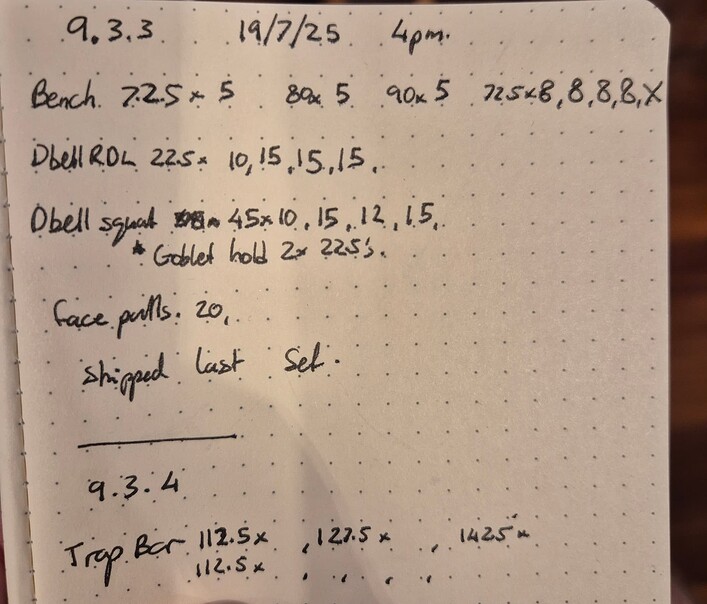 9.3.3 19/7/25 4pm.
Bench. 72.5 x 5 80x 5 90x 5 72.5x8, 8, 8, 8, X
Dbell RDL 22.5x 10, 15, 15, 15,.
Dbell squat 45x10, 15, 12, 15,
* Goblet hold 2x 22.5's.
face pulls. 20,
skipped last set.
9.3.4
Trap Bar 112.5x , 127.5x , 142.5x
112.5x , , , ,